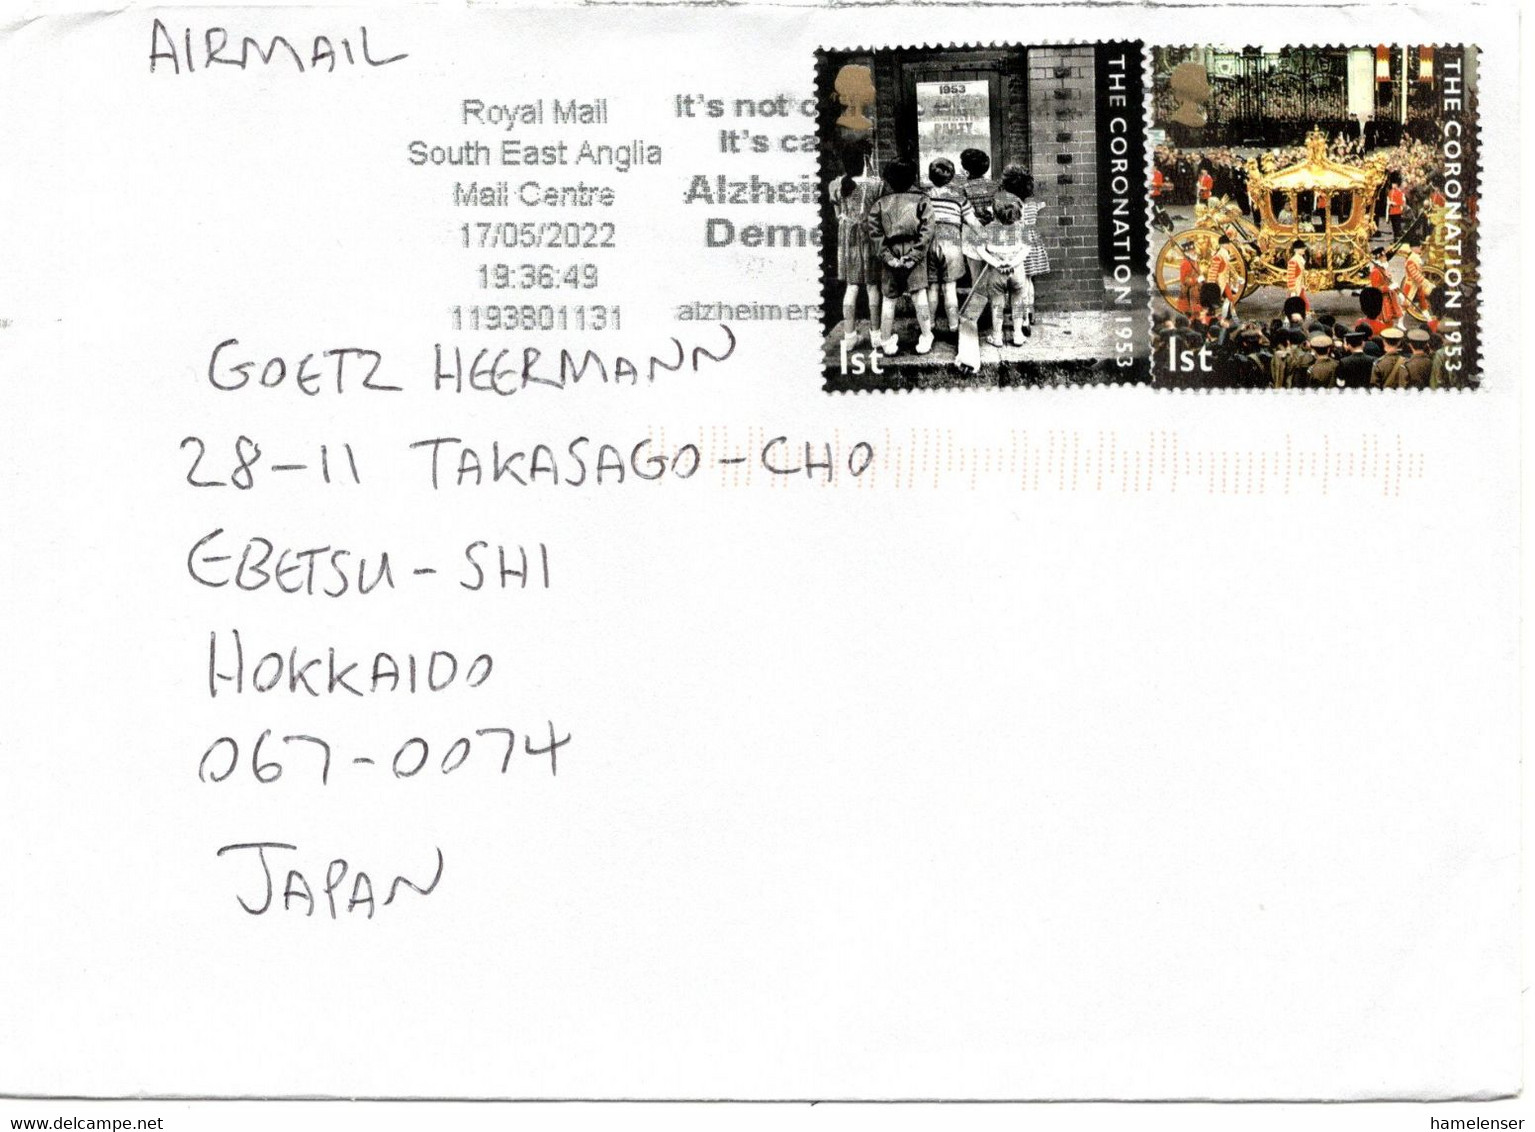 AIRMAIL
Royal Mail
South East Anglia
Mail Centre
17/05/2022
19:36:49
1193801131
It's not
It's
alzheimers
1953
PARTY
THE CORONATION 1953
1st
THE CORONATION 1953
1st
GOETZ HEERMANN
28-11 TAKASAGO-CHO
EBETSU-SHI
HOKKAIDO
067-0074
JAPAN
www.delcampe.net
hamelenser